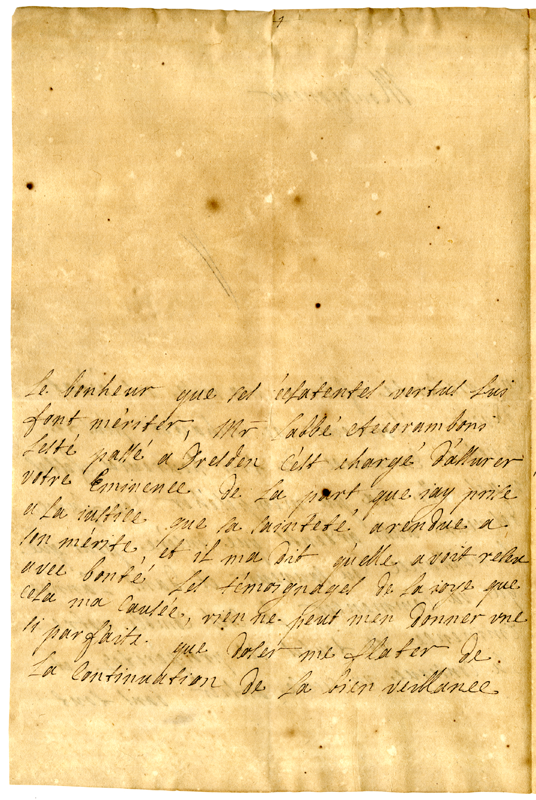 le bonheur que ses éclatentes vertus luy
font mériter, Mr labbé accoramboni
sesté passé a Dresden cest chargé dassurer
votre Eminence de la part que jay prise
a la justice que sa sainteté arendue a
son mérite, et il ma dit quelle avoit reseu
avec bonté les témoignages de la joye que
cela ma causée, rien ne peut men donner une
si parfaite que doser me flater de
la Continuation de la bien veillance